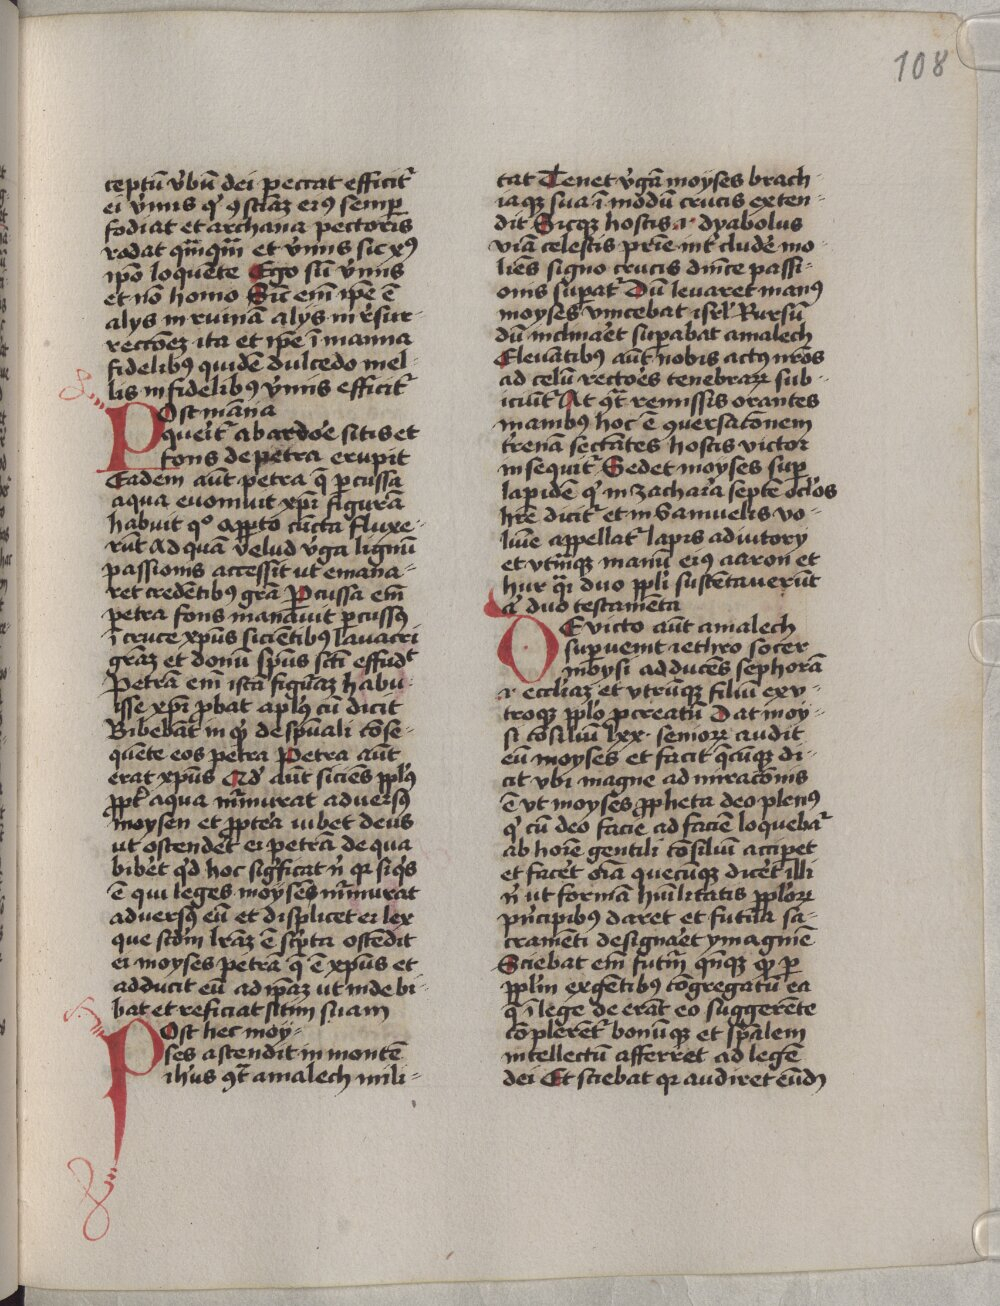 108
ceptū v̓bū dei peccat efficit᷑
ei v̓mis qͥ ꝯsciāz eiꝰ semꝑ
fodiat et archana pectoris
rodat qm̄qm̄ et v̓mis sic xꝰ
ip̄o loquēte Ego sū v̓mis
et nō homo Sic em̄ ip̄e ē
alys in ruinā alys in r̓sur-
rectōez ita et ip̄e ī manna
fidelibꝰ quidē dulcedo mel-
lis infidelibꝰ v̓mis efficit᷑
Post māna
queīt᷑ ab ardoē sitis et
fons de petra erupit
Eadem aūt petra q̄ ꝑcussa
aqua euomuit xp̄i figurā
habuit qͦ aꝑto cūcta fluxe-
rūt Ad quā v̓elud v̓ga lignū
passionis accessit ut emana-
ret credētibꝰ gr̄a Pcussa em̄
petra fons manauit ꝑcussꝰ
ī cruce xp̄us sicientibꝰ lauacri
gr̄az et donū sp̄us scī effudᵗ
Petrā em̄ istā figurāz habu-
isse xp̄i ꝓbat apl̓us cū dicit
Bibebāt inqͥ de sp̄uali cōse-
quēte eos petra Petra aūt
erat xp̄us Ad̓ aūt sicies ppl̓ꝰ
ꝓpt᷑ aqua m̓murat aduersꝰ
moysen et ꝓpterā iubet deus
ut ostendet̓ ei petrā de qua
bibet̓ qͥd hoc sigͥficat n̓ qꝛ siqͥs
ē qui leges moysēs m̓murat
aduersꝰ eū et displicet ei lex
que scdm̄ lr̄az ē sc̓pta ostēdit
ei moyses petrā q̄ ē xp̄us et
adducit eū ad ip̄az ut inde bi-
bat et reficiat sitim suam
Post hec moy-
ses ascendit in montē
ih̓us ꝯt᷑ amalech mili-
tat Tenet v̓gā moyses brach-
iaqꝫ sua ī modū crucis exten-
dit Sicqꝫ hostis .i. dyabolus
viā celestis pr̄ie int᷑cludē mo-
liēs signo crucis dn̄ice passi-
onis suꝑat᷑ Dū leuaret manꝰ
moyses vincebat isrl̓ Rursū
dū inclinaēt suꝑabat amalech
Eleuātibꝰ aūt nobis actꝰ nr̄os
ad celū rectoēs tenebraꝝ sub-
iciūt᷑ At ꝯt᷑ remissis orantes
manibꝰ hoc ē ꝯuersatōnem
t̓renā sectātes hostis victor
insequit᷑ Sedet moyses suꝑ
lapidē qͥ in zachar̄ia septē oc̓los
hr̄e dicit᷑ et in samuelis vo-
lūīe appellat᷑ lapis adiutory
et vtrūqꝫ manū eiꝰ aaron et
hur q̄i duo ppl̓i sustētauerūt
.i. duo testamēta
Deuicto aūt amalech
suꝑuenit iethro socer
moysi adducēs sephorā
.i. eccl̓iaz et vtrūqꝫ filiū ex v-
troqꝫ ppl̓o ꝓcreatū Dat moy-
si cōsiliū lxx. senioꝝ audit
eū moyses et facit q̄cūqꝫ di-
cit vbi magne admiracōnis
ē vt moyses ꝓpheta deo plenꝰ
qͥ cū deo facie ad faciē loquebat᷑
ab hoīe gentili cōsiliū acciꝑet
et facet̓ oīa quecūqꝫ dicet̓ illi
n̓ ut formā hūīlitatis ppl̓oꝝ
pͥncipibꝰ daret et futura sa-
cramēti designaēt ymaginē
Sciebat em̄ futuꝝ qn̄qꝫ qͥ ꝑ
ppl̓m ex gētibꝰ cōgregatū ea
q̄ ī lege deerāt eo suggerēte
cōplerēt᷑ bonūqꝫ et sp̄alem
intellectū afferret ad legē
dei Et sciebat qꝛ audiret eūdꝫ